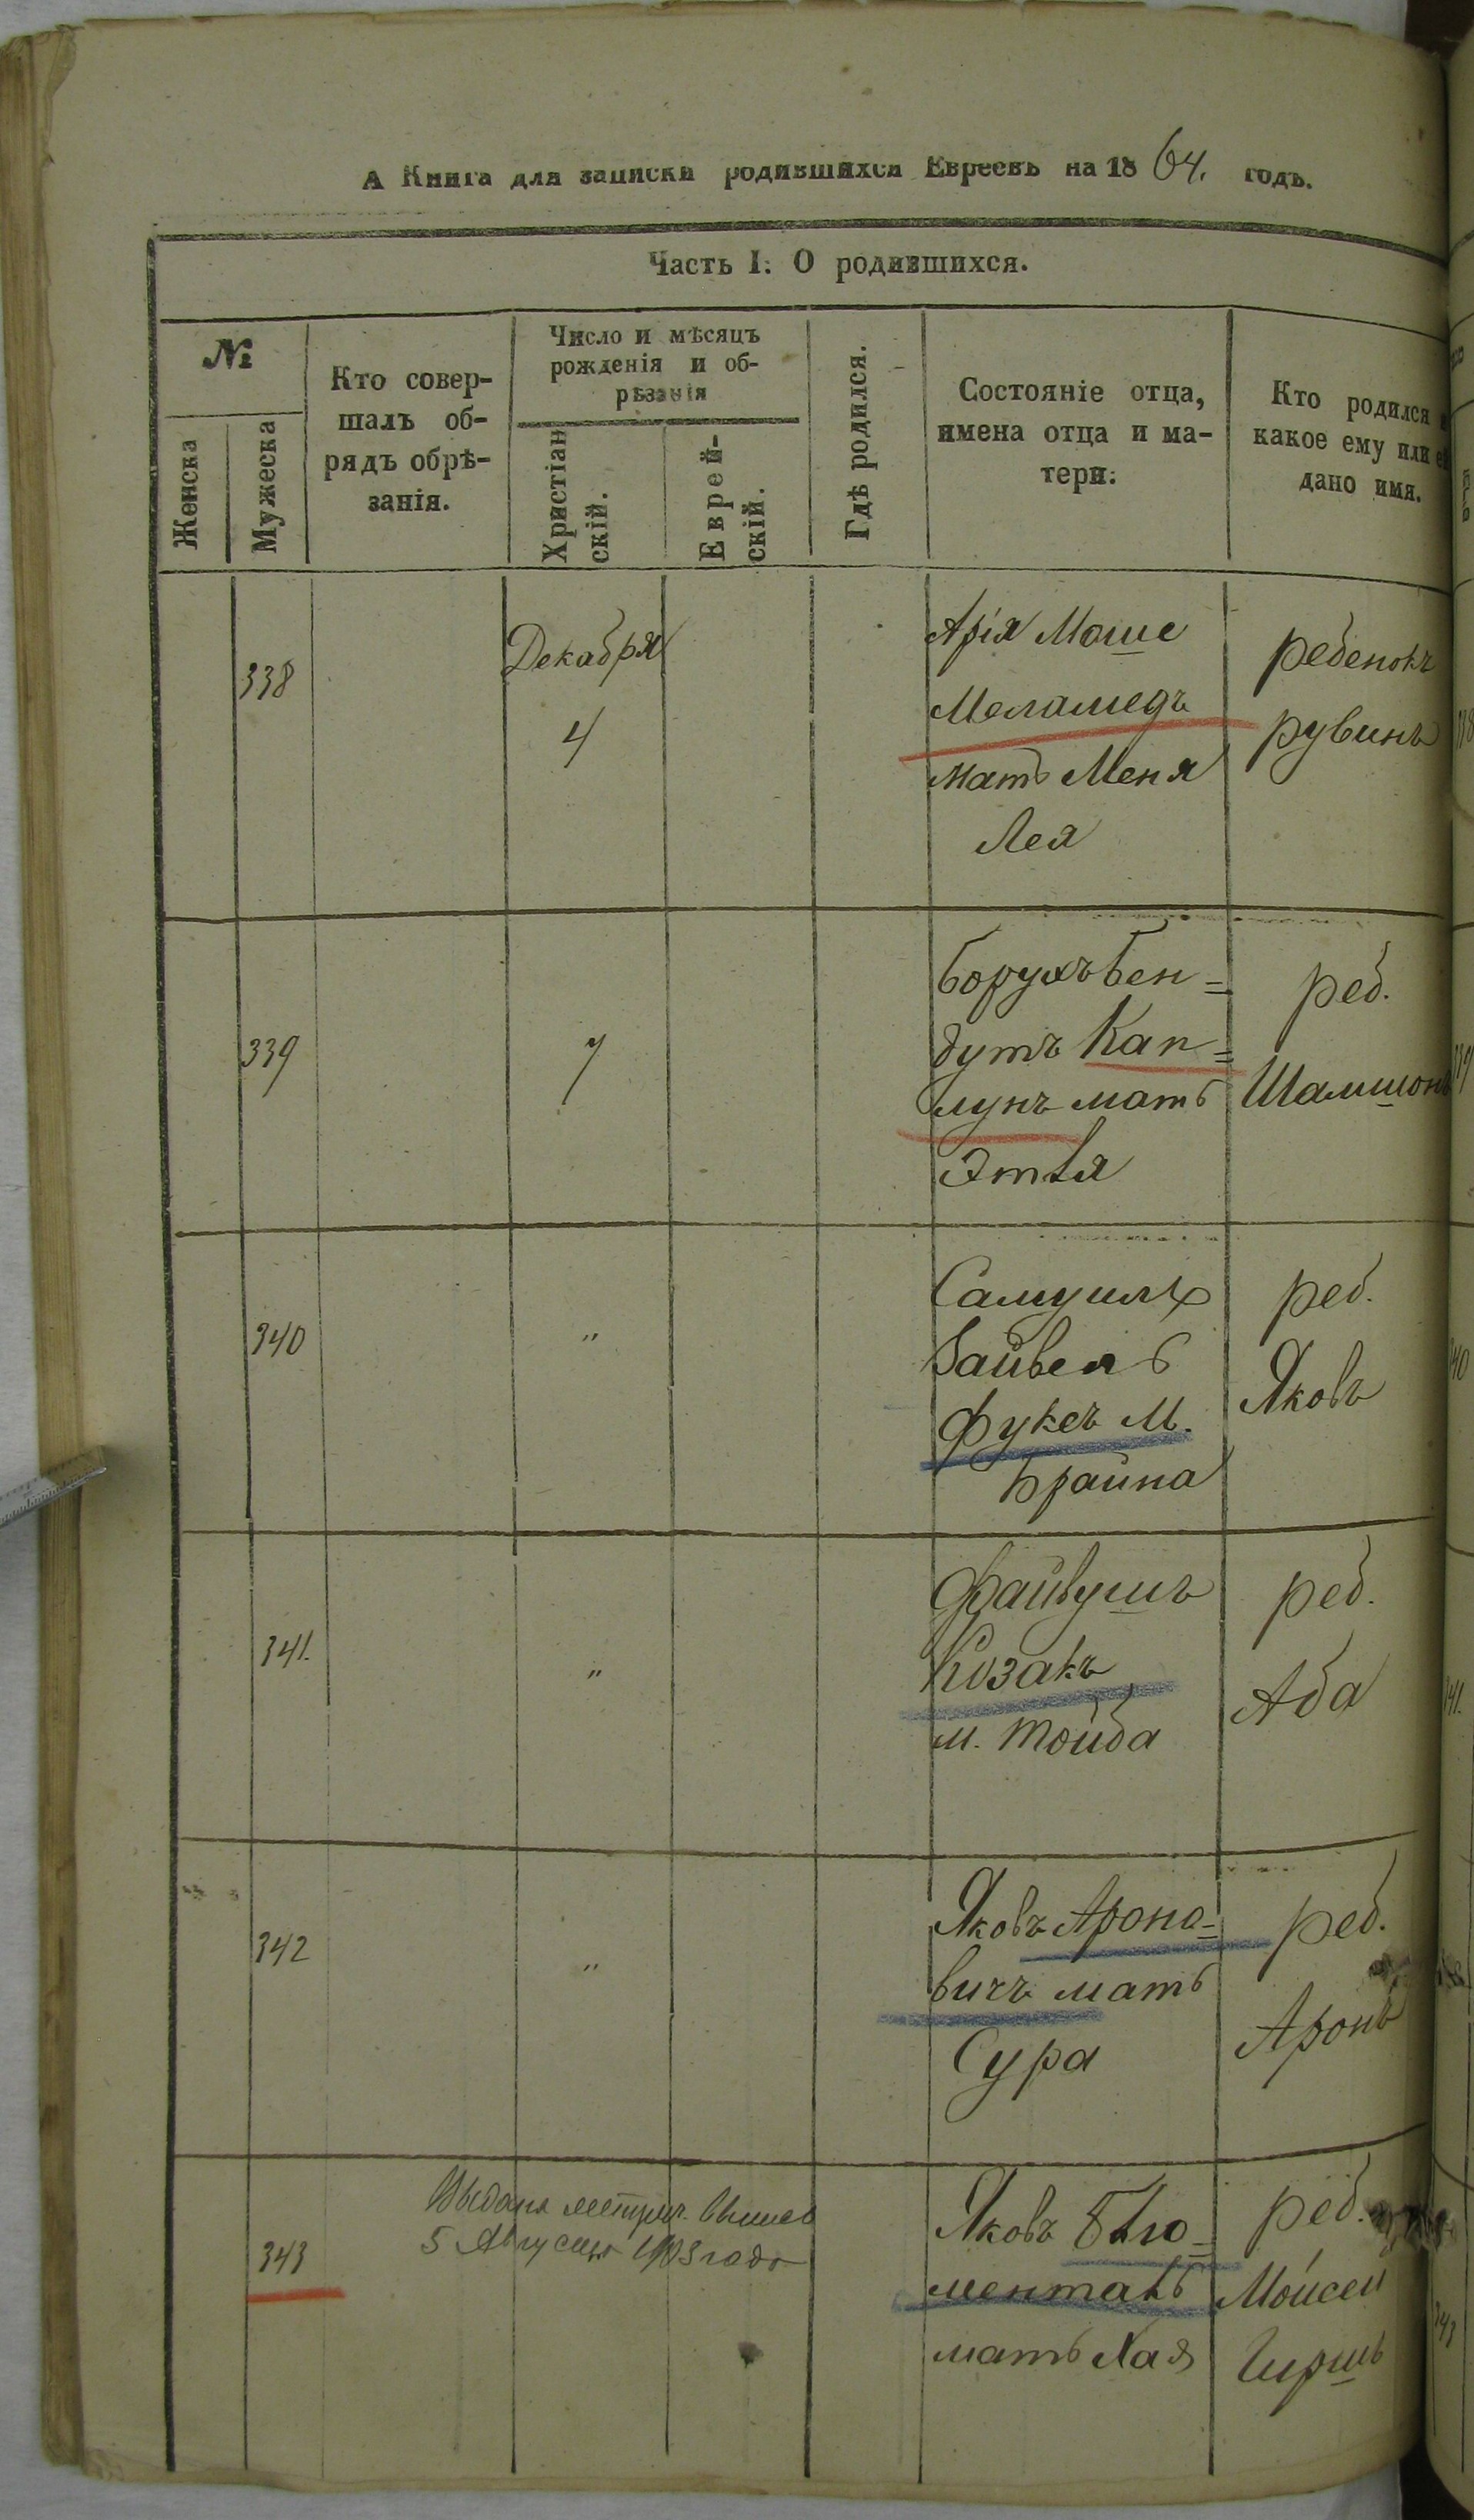 А Книга для записки родившихся Евреевъ на 1864. годъ.
Часть I: О родившихся.
№
Женска
Мужеска
Кто совер-
шалъ об-
рядъ обрѣ-
занія.
Число и мѣсяцъ
рожденія и об-
рѣзанія
Христіан
скій.
Еврей-
скій.
Гдѣ родился.
Состояніе отца,
имена отца и ма-
тери:
Кто родился
какое ему или ей
дано имя.
338
Декабря
4
Арія Моше
Меламедъ
мать Меня
Лея
ребенокъ
рувинъ
339
7
Борухъ Бен=
дутъ Кап=
лунъ мать
Этля
реб.
Шамшонъ
340
"
Самуилъ
Зайвель
Фуксъ М.
Брайна
реб.
Яковъ
341.
"
Файвушъ
Козакъ
м. Тойба
реб.
Аба
342
"
ЯковъАроно=
вичъ мать
Сура
реб.
Аронъ
343
Выдана метрич. выпись
5 Августа 1903 года
Яковъ Блю=
менталь
мать Хая
реб.
Мойсей
Гиршъ